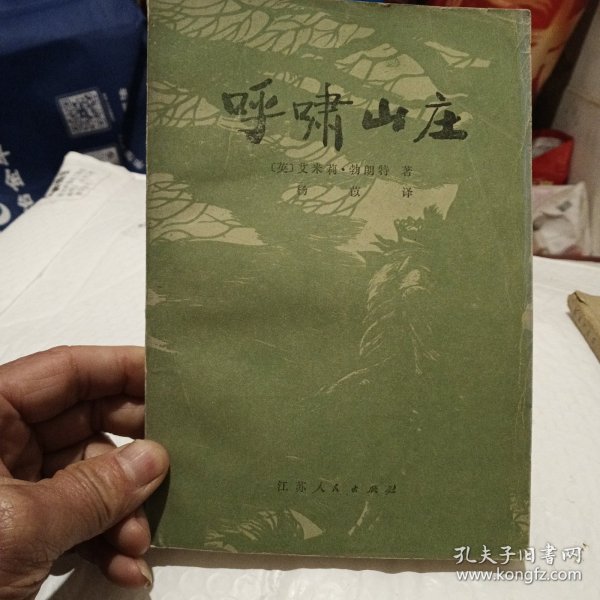 呼啸山庄
〔英〕艾米莉·勃朗特 著
杨苡 译
江苏人民出版社
孔夫子旧书网
www.kongfz.com